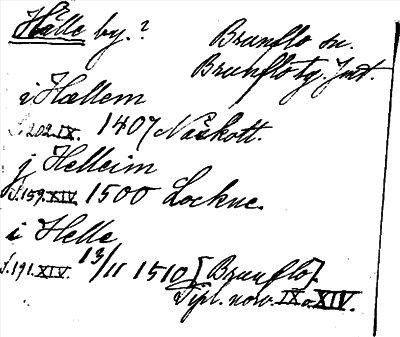 Hålle by.?
Brunflo sn.
Brunflo tg. Jmt.
i Hællem
S.202.IX. 1407 Näskott.
j Helleim
S.159.XIV. 1500 Lockne.
i Helle
S.191.XIV. 13/11 1510 [Brunflo].
Dipl. norv. IX o. XIV.